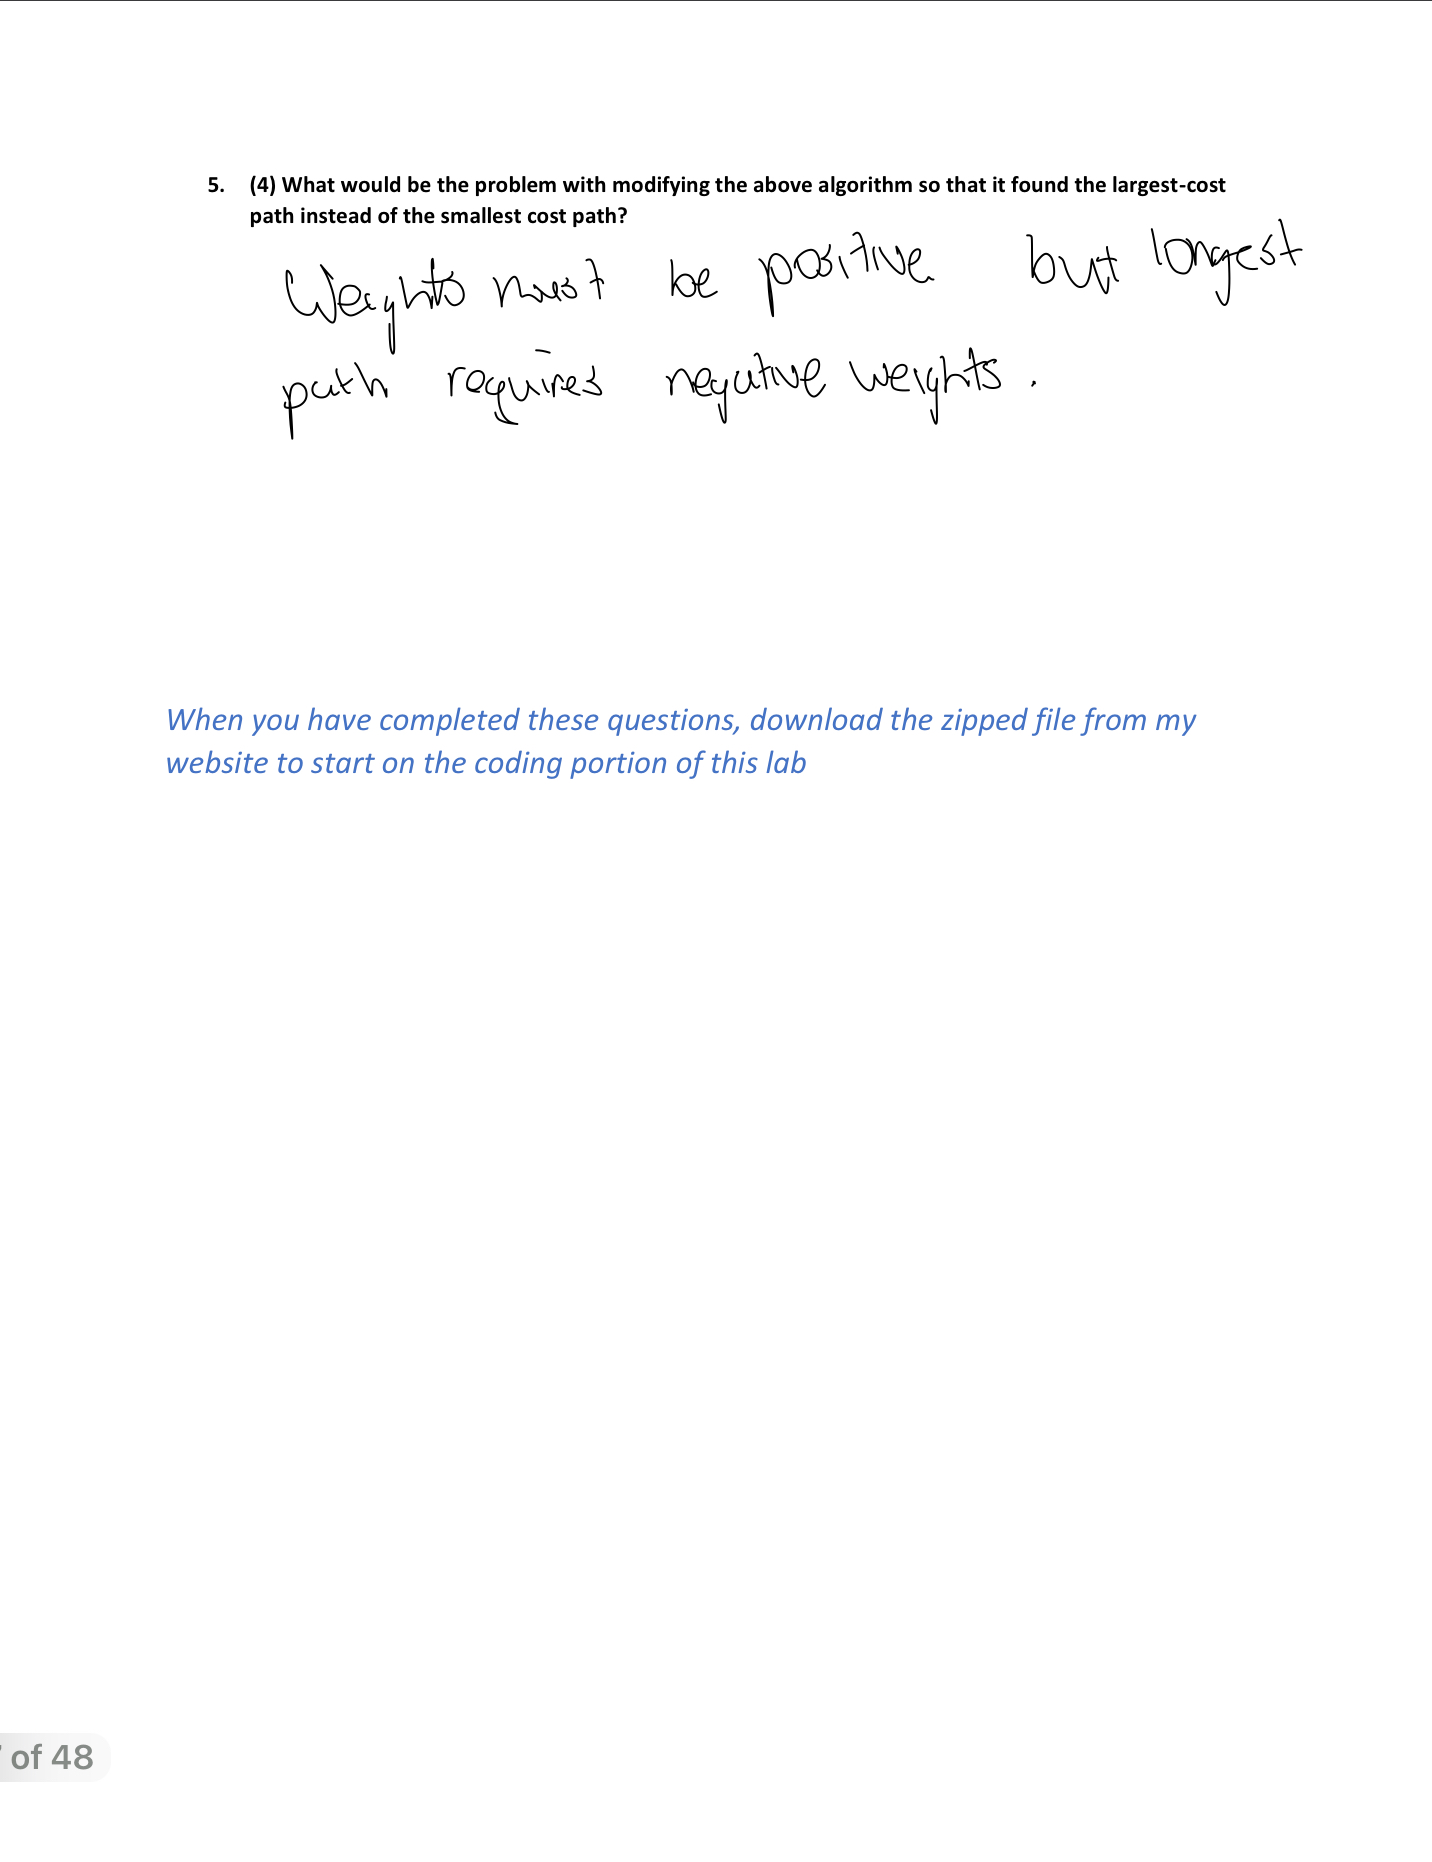 5. (4) What would be the problem with modifying the above algorithm so that it found the largest-cost
path instead of the smallest cost path?
Weights must be positive but longest
path requires negative weights.
When you have completed these questions, download the zipped file from my
website to start on the coding portion of this lab
of 48